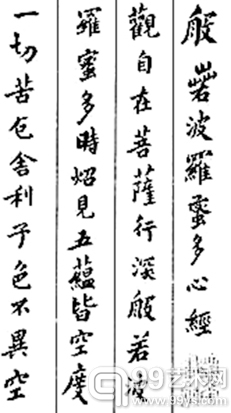 般若波羅蜜多心經
觀自在菩薩行深般若波
羅蜜多時炤見五蘊皆空度
一切苦厄舍利子色不異空
99艺术网
www.99ys.com